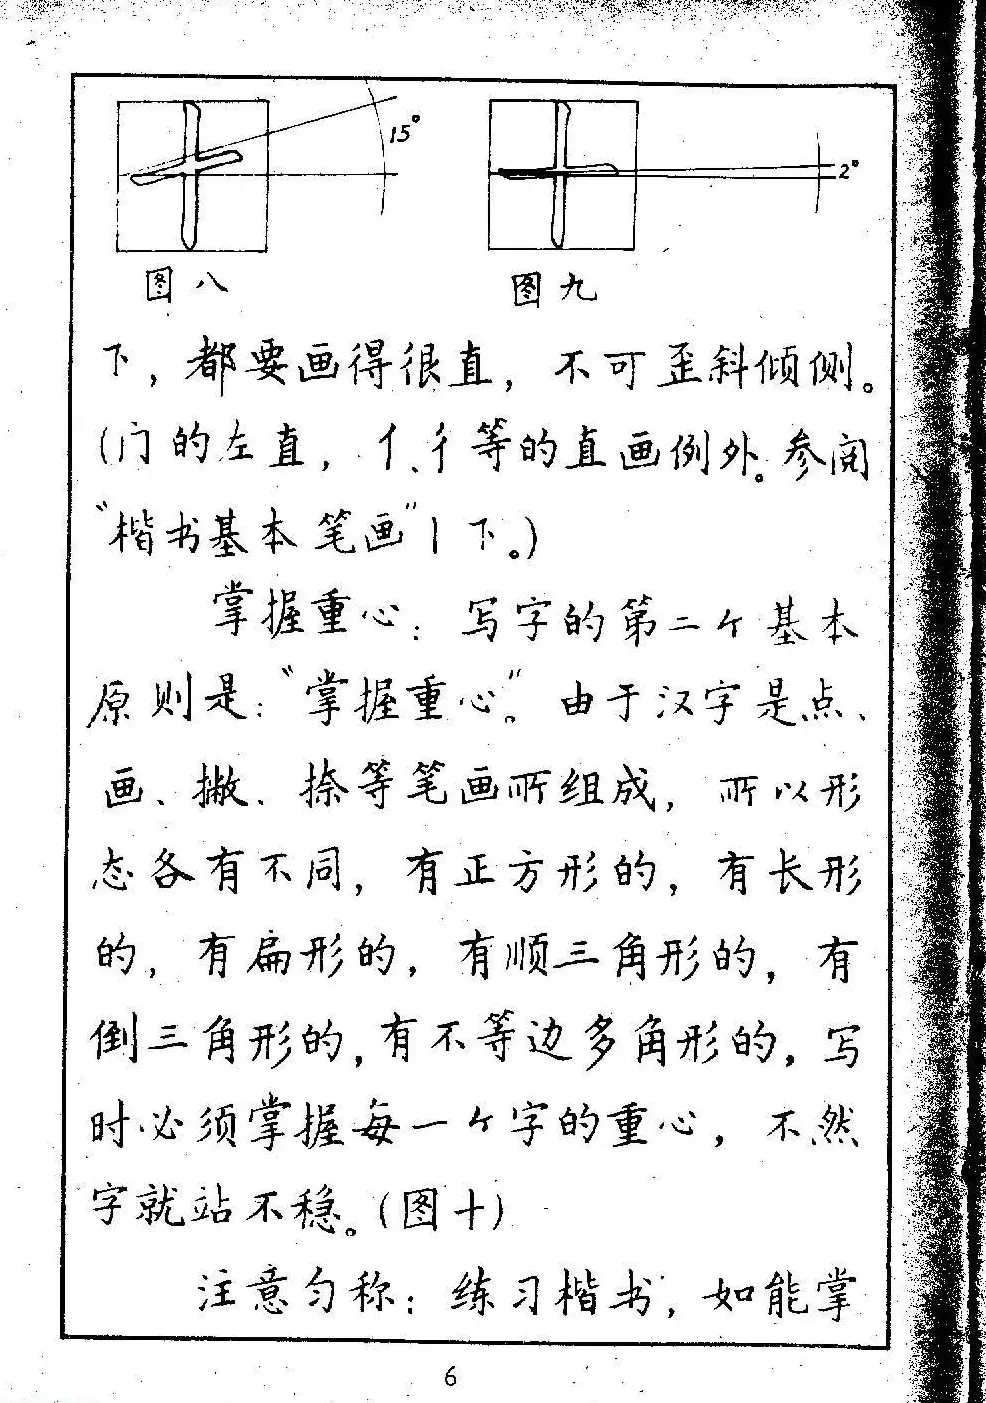 15°
2°
图八
图九
下，都要画得很直，不可歪斜倾侧。
(门的左直，亻、彳等的直画例外。参阅
“楷书基本笔画”丨下。)
掌握重心：写字的第二个基本
原则是：“掌握重心”。由于汉字是点、
画、撇、捺等笔画所组成，所以形
态各有不同，有正方形的，有长形
的，有扁形的，有顺三角形的，有
倒三角形的，有不等边多角形的，写
时必须掌握每一个字的重心，不然
字就站不稳。(图十)
注意匀称：练习楷书，如能掌
6